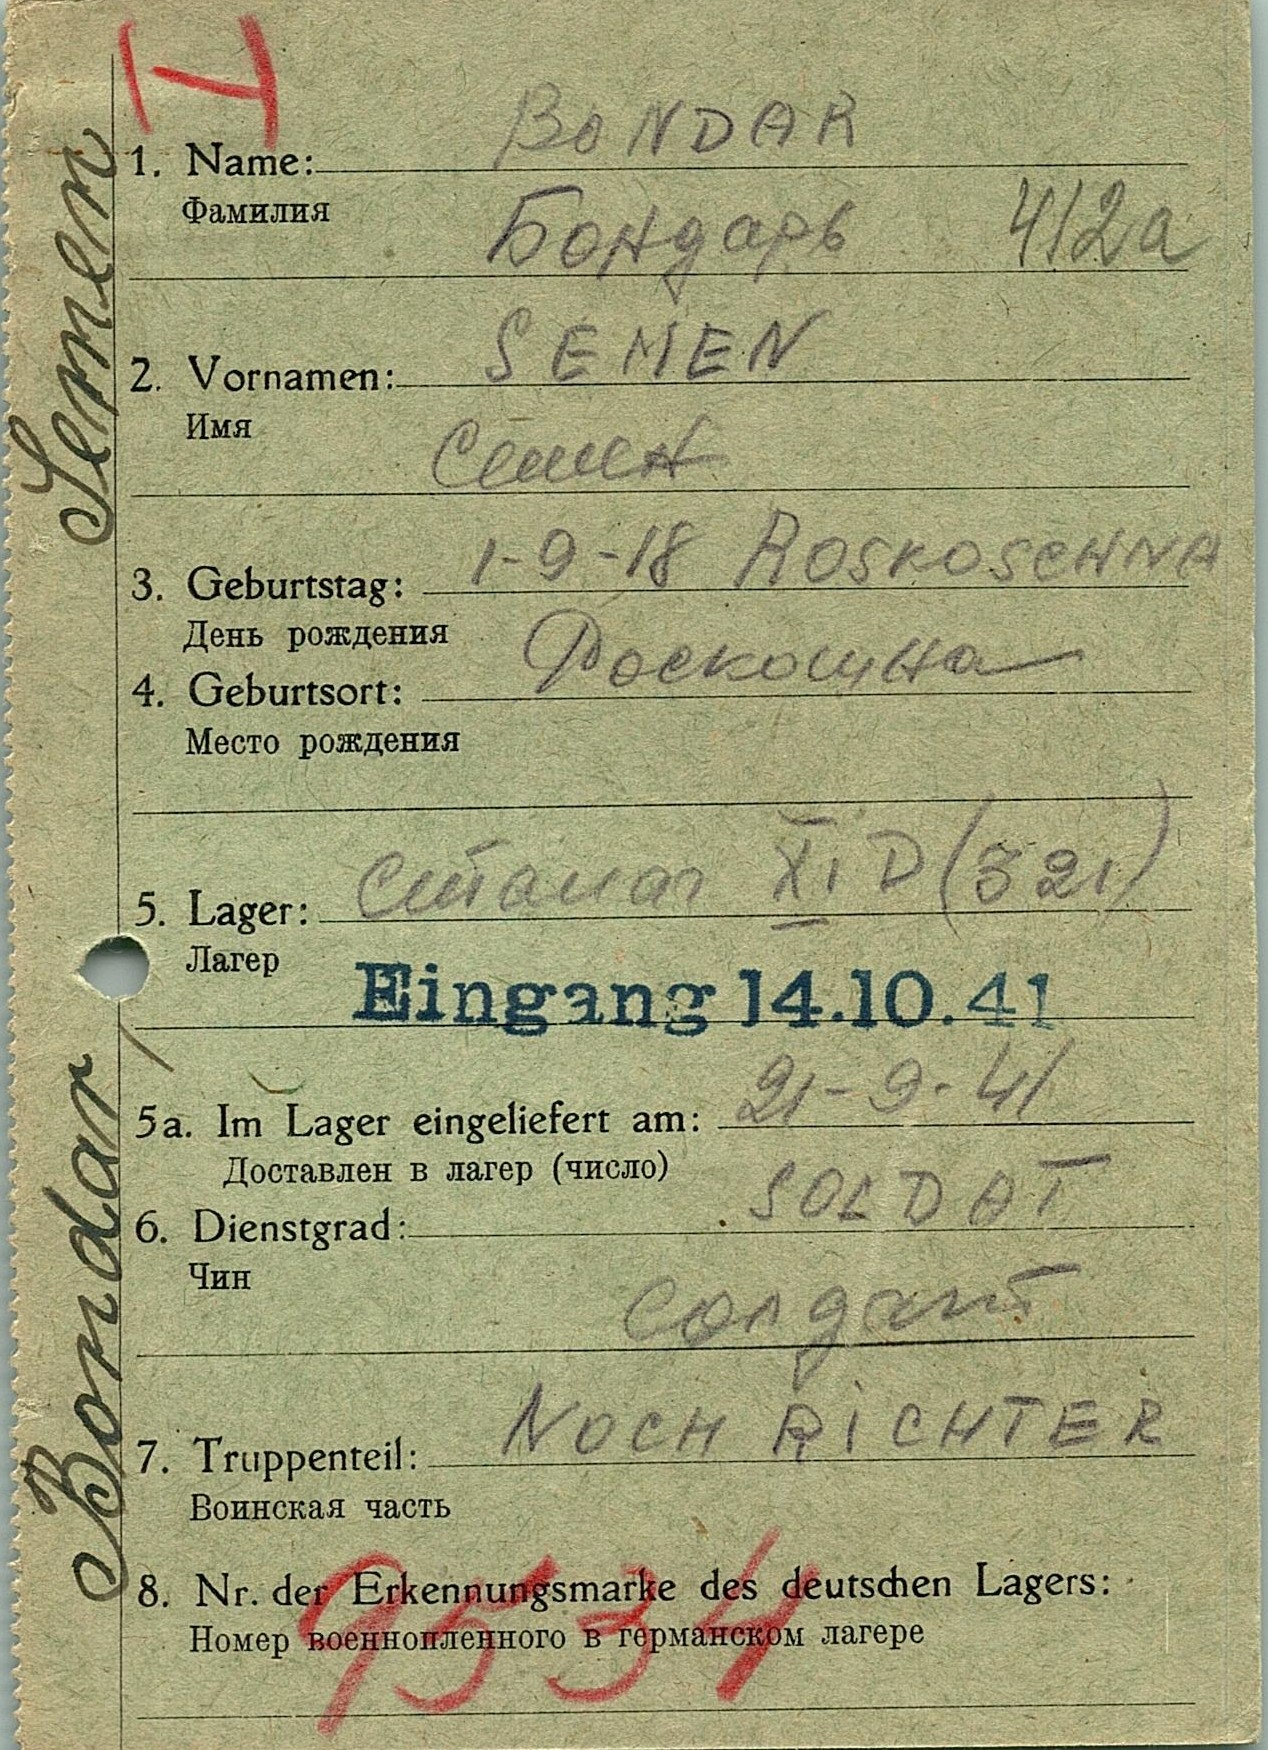 I
1. Name: BONDAR
Фамилия
Бондарь 412a
2. Vornamen: SEMEN
Имя
Семен
3. Geburtstag: 1-9-18 ROSKOSCHNA
День рождения
Роскошна
4. Geburtsort:
Место рождения
5. Lager: Сталаг XI D (321)
Лагер
Eingang 14.10.41
5a. Im Lager eingeliefert am: 21-9-41
Доставлен в лагер (число)
6. Dienstgrad: SOLDAT
Чин
Солдат
7. Truppenteil: NOCH RICHTER
Воинская часть
8. Nr. der Erkennungsmarke des deutschen Lagers:
Номер военнопленного в германском лагере
9534
Bondar, Semen